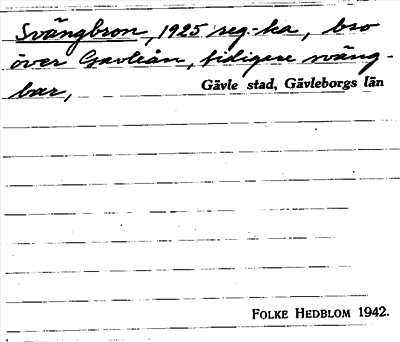 Svängbron, 1925 reg-ka, bro
över Gavleån, tidigare sväng-
bar,
Gävle stad, Gävleborgs län
FOLKE HEDBLOM 1942.